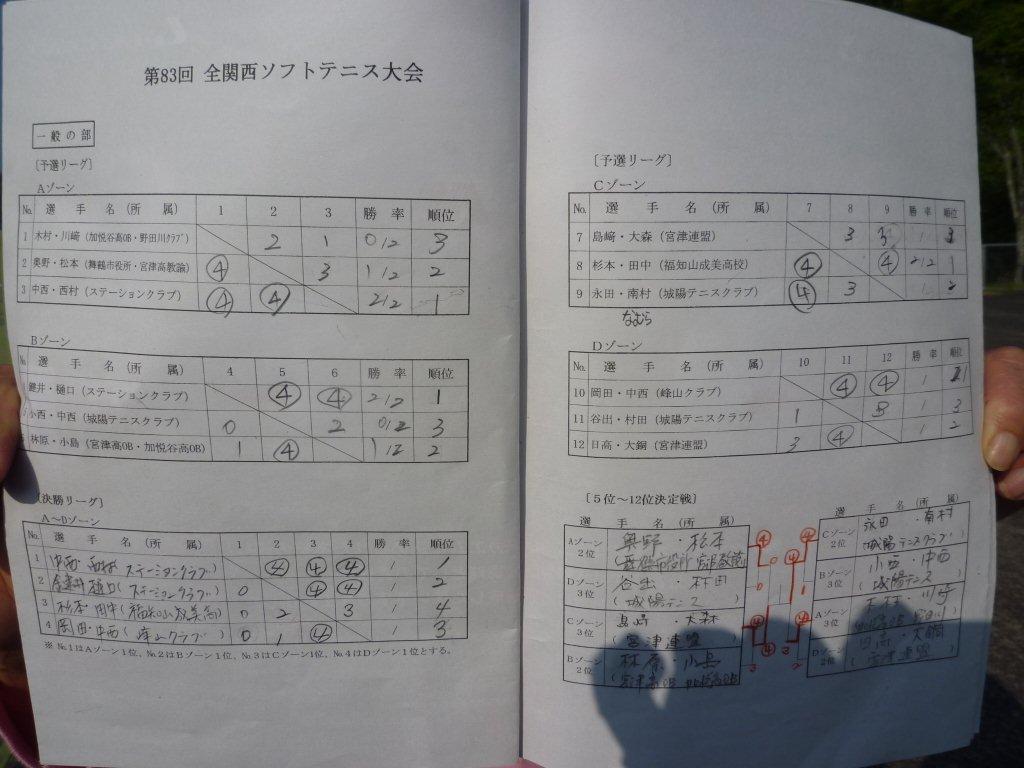 第83回 全関西ソフトテニス大会
一般の部
〔予選リーグ〕
Aゾーン
No. 選 手 名 (所 属) 1 2 3 勝 率 順位
1 木村・川﨑 (加悦谷高OB・野田川クラブ) 2 1 0/2 3
2 奥野・松本 (舞鶴市役所・宮津高教諭) ④ 3 1/2 2
3 中西・西村 (ステーションクラブ) ④ ④ 2/2 1
Bゾーン
No. 選 手 名 (所 属) 4 5 6 勝 率 順位
鍵井・樋口 (ステーションクラブ) ④ ④ 2/2 1
小西・中西 (城陽テニスクラブ) 0 2 0/2 3
林原・小島 (宮津高OB・加悦谷高OB) 1 ④ 1/2 2
〔決勝リーグ〕
A～Dゾーン
No. 選 手 名 (所 属) 1 2 3 4 勝 率 順位
1 中西・西村 ステーションクラブ) ④ ④ ④ 1
2 樋口 (ステーションクラブ) 0 ④ ④ 2
3 杉本・田中 0 2 3 4
4 岡田・中西 (峰山クラブ) 0 1 ④ 3
※ No.1はAゾーン1位、No.2はBゾーン1位、No.3はCゾーン1位、No.4はDゾーン1位とする。
〔予選リーグ〕
Cゾーン
No. 選 手 名 (所 属) 7 8 9 勝 率 順位
7 島﨑・大森 (宮津連盟) 3 3
8 杉本・田中 (福知山成美高校) ④ ④ 2/2 1
9 永田・南村 (城陽テニスクラブ) ④ 3 2
なむら
Dゾーン
No. 選 手 名 (所 属) 10 11 12 勝 率 順位
10 岡田・中西 (峰山クラブ) ④ ④ 1
11 谷出・村田 (城陽テニスクラブ) 1 3 3
12 日高・大鋼 (宮津連盟) 3 ④ 2
〔5位～12位決定戦〕
選 手 名 (所 属)
Aゾーン 2位 奥野・松本
Dゾーン 3位 谷出・村田
(城陽テニス)
Cゾーン 3位 島﨑・大森
(宮津連盟)
Bゾーン 2位 林原・小島
(宮津高OB 加悦谷高OB)
選 手 名 (所 属)
Cゾーン 2位 永田・南村
(城陽テニスクラブ)
Bゾーン 3位 小西・中西
(城陽テニス)
Aゾーン 3位 木村・川﨑
Dゾーン 2位 日高・大鋼
(宮津連盟)